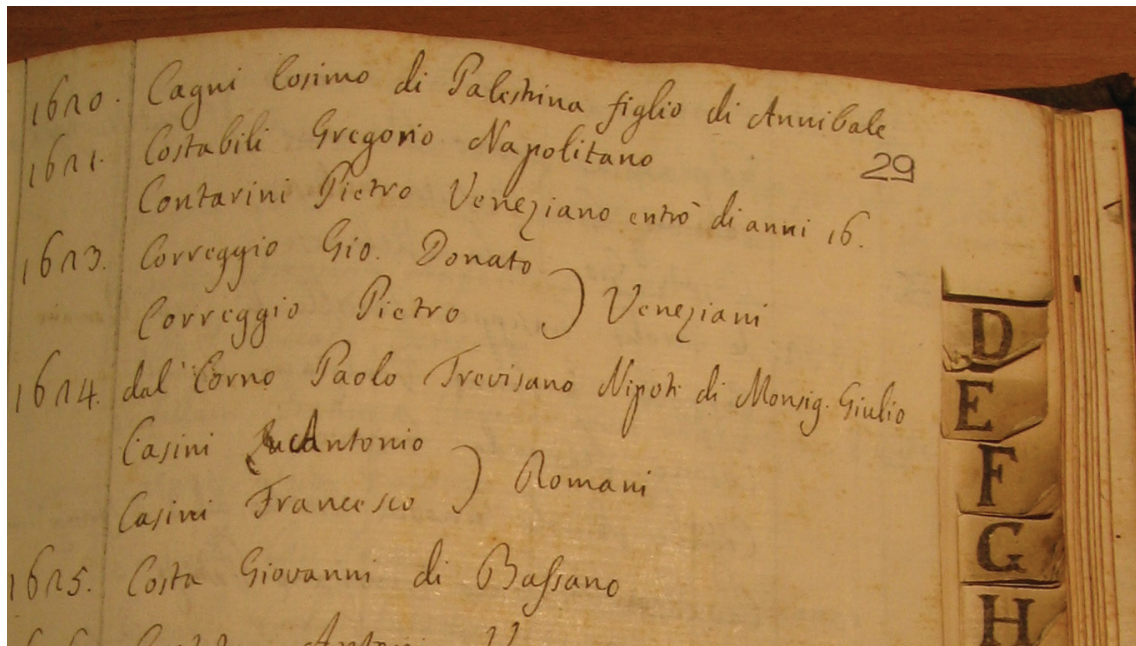 1620. Cagni Cosimo di Palestrina figlio di Annibale
1621. Costabili Gregorio Napolitano
29
Contarini Pietro Veneziano entrò di anni 16.
1623. Correggio Gio. Donato
Correggio Pietro ) Veneziani
1624. dal Corno Paolo Trevisano Nipote di Monsig. Giulio
Casini Antonio
Casini Francesco ) Romani
1625. Costa Giovanni di Baſsano
D
E
F
G
H